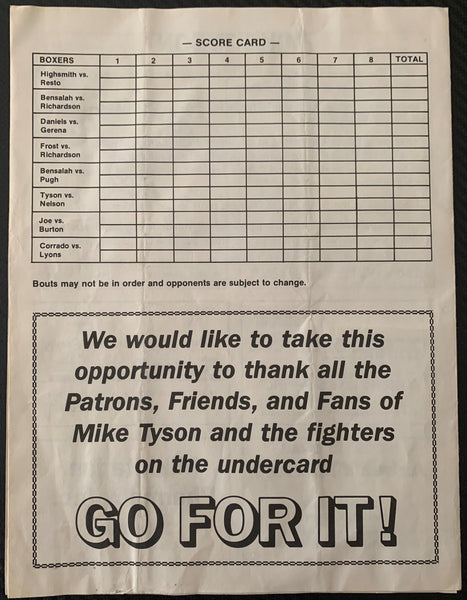 — SCORE CARD —
BOXERS 1 2 3 4 5 6 7 8 TOTAL
Highsmith vs.
Resto
Bensalah vs.
Richardson
Daniels vs.
Gerena
Frost vs.
Richardson
Bensalah vs.
Pugh
Tyson vs.
Nelson
Joe vs.
Burton
Corrado vs.
Lyons
Bouts may not be in order and opponents are subject to change.
We would like to take this
opportunity to thank all the
Patrons, Friends, and Fans of
Mike Tyson and the fighters
on the undercard
GO FOR IT!